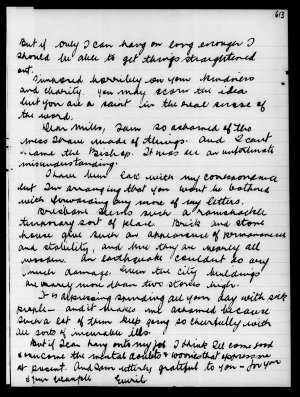 613
But if only I can hang on long enough I
should be able to get things straightened
out.
I imposed horribly on your kindness
and charity. You may scorn the idea
but you are a saint in the real sense of
the word.
Dear Mills, I am so ashamed of the
mess I have made of things. And I can't
blame the Bishop. It was all an unfortunate
misunderstanding.
I have been lax with my correspondence
but I'm arranging that you wont be bothered
with forwarding any more of my letters.
Brisbane seems such a ramshackle
temporary sort of place. Brick and stone
houses give such an appearance of permanence
and stability, and here they are nearly all
wooden. An earthquake couldn't do very
much damage. Even the city buildings
are rarely more than two stories high.
It is depressing spending all your day with sick
people - and it makes me ashamed because
such a lot of them keep going so cheerfully with
all sorts of incurable ills.
But if I can hang onto my job I think I'll come good
& overcome the mental doubts & worries that oppress me
at present. And I am utterly grateful to you - for you
& your example